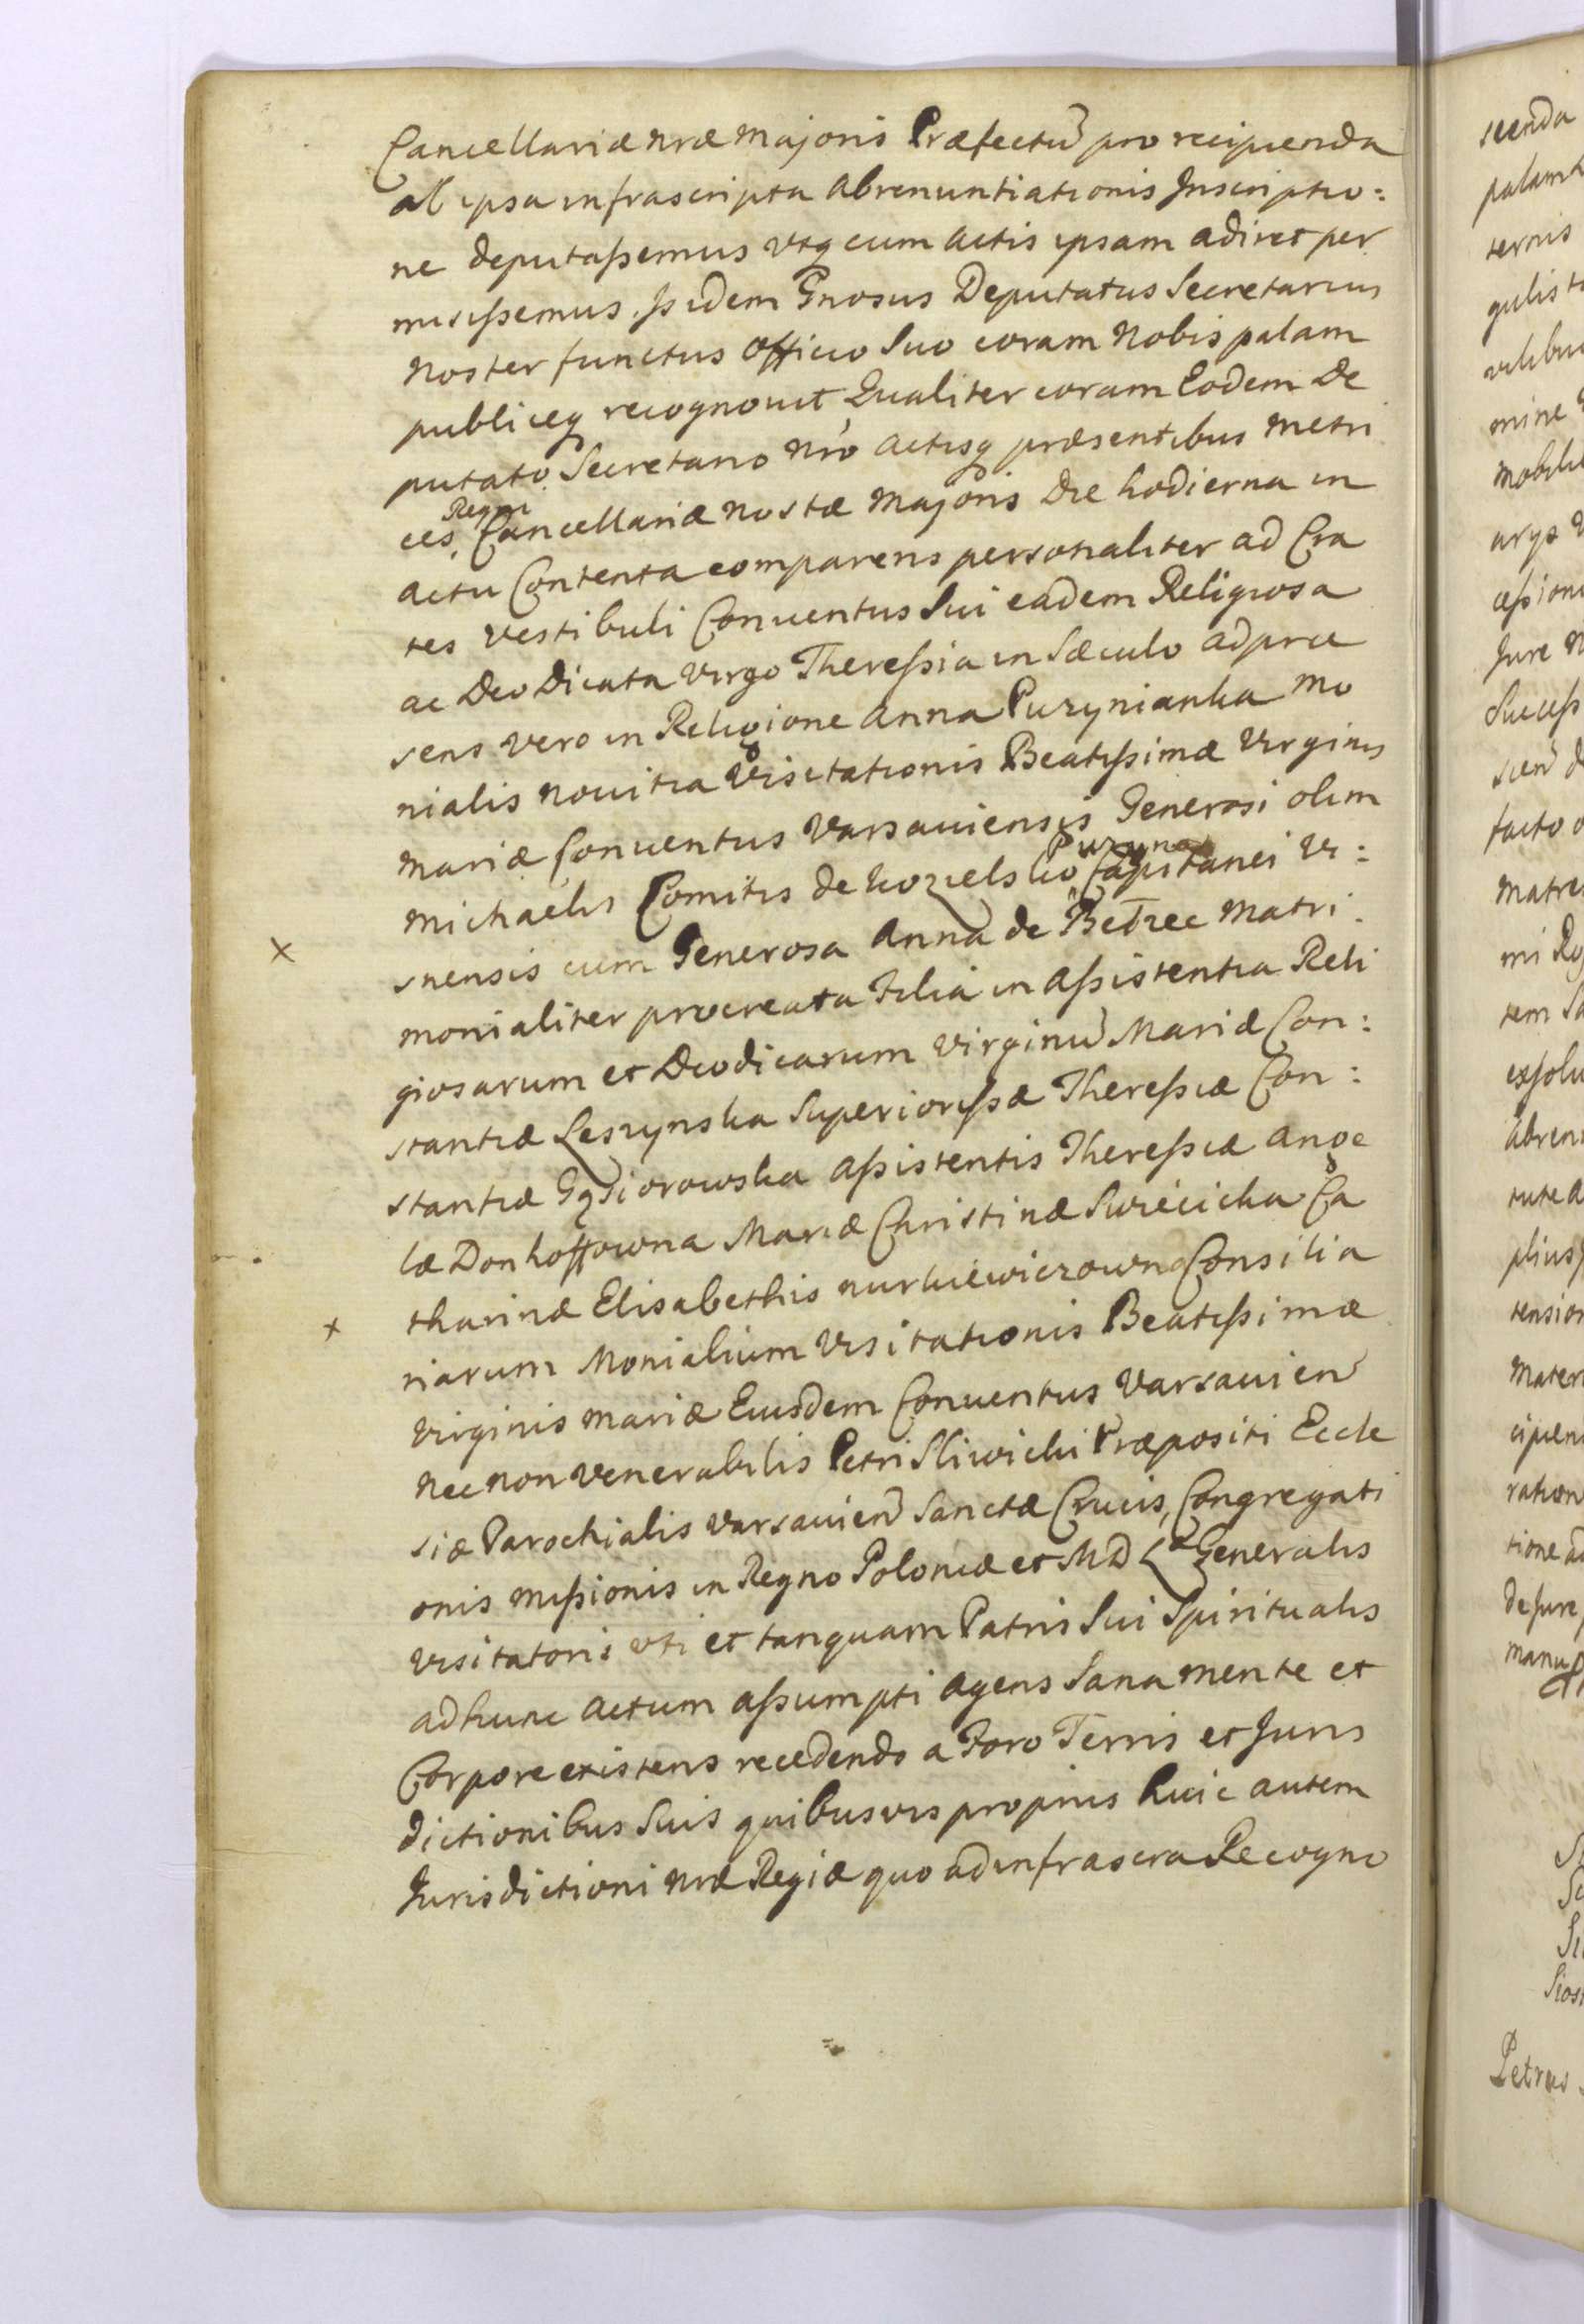 Cancellariæ nræ Majoris Præfectũ pro recipienda
ab ipsa infrascripta Abrenuntiationis Inscriptio:
ne deputaßemus utq cum Actis ipsam adiret per
misißemus. Is idem Gnosus Deputatus Secretarius
Noster functus officio Suo coram Nobis palam
publiceq recognouit Qualiter coram Eodem De
putato Secretario Nro Actisq præsentibus Metri
ces Regni Cancellariæ Nostæ Majoris Die hodierna in
actu Contenta comparens personaliter ad Cra
tes Vestibuli Conuentus Sui eadem Religiosa
ac Deo Dicata Virgo Thereßia in Sæculo ad præ
sens vero in Religione Anna Puzynianka Mo
nialis Nouitia Visitationis Beatißimæ Virginis
Mariæ Conuentus Varsauiensis Generosi olim
Michaelis Comitis de Kozielsko Puzyna Capitanei Vi:
snensis cum Generosa Anna de Betzec Matri.
monialiter procreata Filia in Aßistentia Reli
giosarum et Deodicarum Virginũ Mariæ Con:
stantiæ Leszynska Superiorißæ Thereßiæ Con:
stantiæ Gąsiorowska Aßistentis Thereßiæ Ange
læ Donhoffowna Mariæ Christinæ Swiecicka Ca
tharinæ Elisabethis Nurkiewiczowna Consilia
riarum Monialium Visitationis Beatißimæ
Virginis Mariæ Eiusdem Conuentus Varsauien
Nec non Venerabilis Petri Sliwicki Præpositi Eccle
siæ Parochialis Varsauien Sanctæ Crucis, Congregati
onis Mißionis in Regno Poloniæ et M D L Generalis
Visitatoris uti et tanquam Patris Sui Spiritualis
ad hunc Actum aßumpti agens Sana Mente et
Corpore existens recedendo a Foro Terris et Juris
dictionibus Suis quibusvis proprijs huic autem
Jurisdictioni Nræ Regiæ quo ad infrascra Recogno